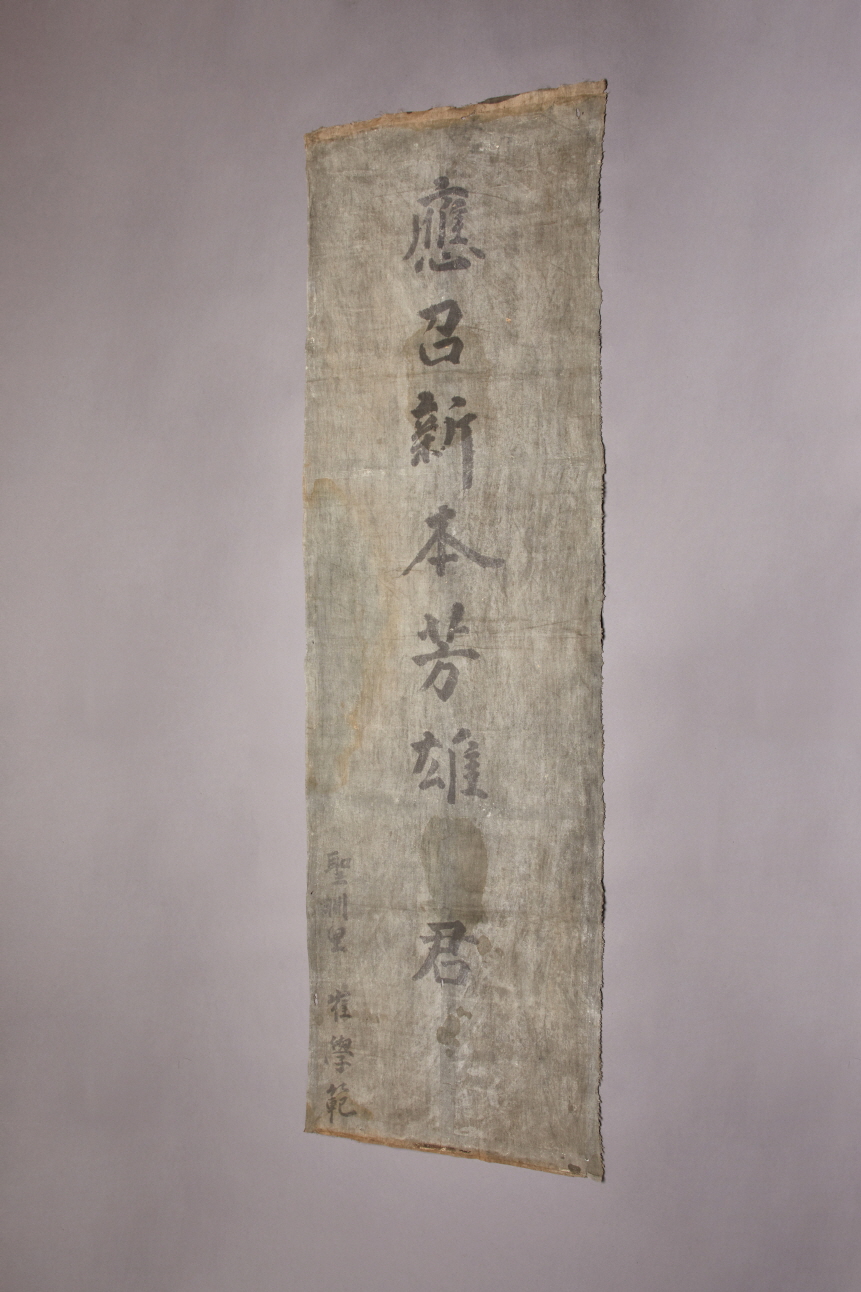 應召新本芳雄 君
聖訓里 崔學範